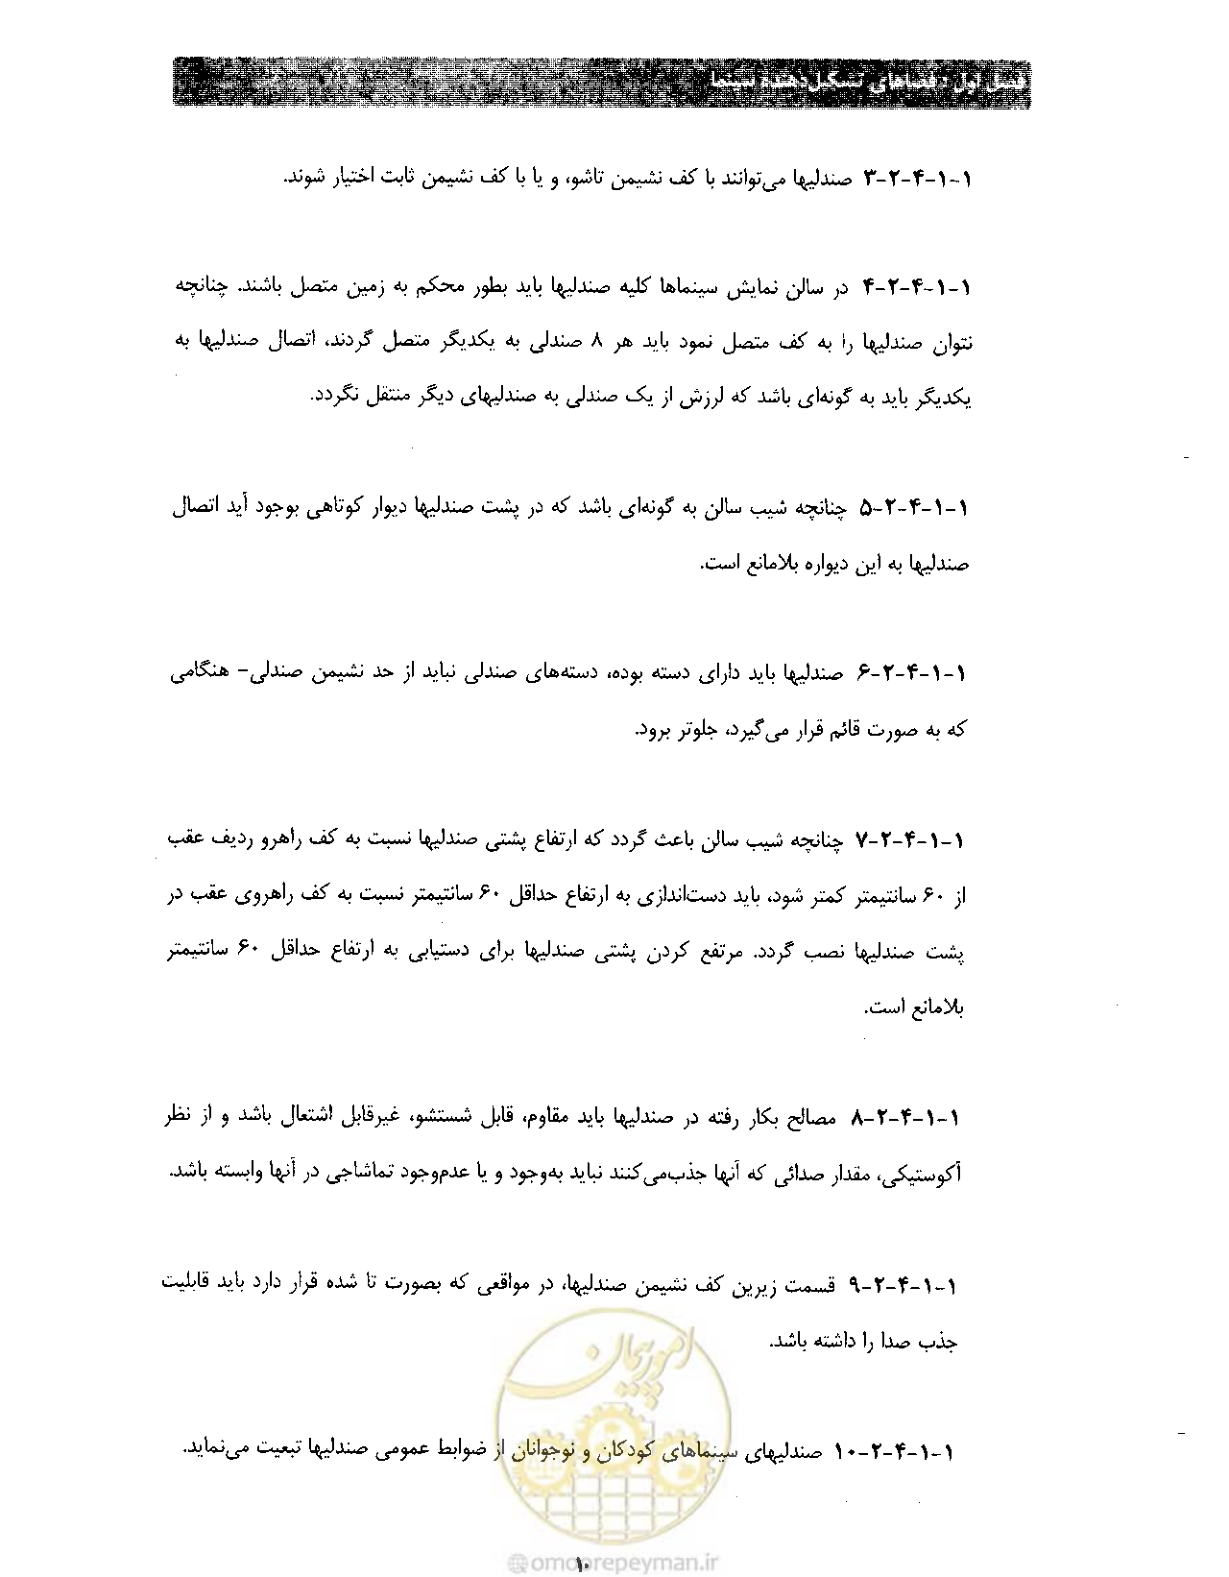 فصل اول : فضاهای تشکیل‌دهنده سینما
۱-۱-۴-۲-۳ صندلیها می‌توانند با کف نشیمن تاشو، و یا با کف نشیمن ثابت اختیار شوند.
۱-۱-۴-۲-۴ در سالن نمایش سینماها کلیه صندلیها باید بطور محکم به زمین متصل باشند. چنانچه
نتوان صندلیها را به کف متصل نمود باید هر ۸ صندلی به یکدیگر متصل گردند، اتصال صندلیها به
یکدیگر باید به گونه‌ای باشد که لرزش از یک صندلی به صندلیهای دیگر منتقل نگردد.
۱-۱-۴-۲-۵ چنانچه شیب سالن به گونه‌ای باشد که در پشت صندلیها دیوار کوتاهی بوجود آید اتصال
صندلیها به این دیواره بلامانع است.
۱-۱-۴-۲-۶ صندلیها باید دارای دسته بوده، دسته‌های صندلی نباید از حد نشیمن صندلی- هنگامی
که به صورت قائم قرار می‌گیرد، جلوتر برود.
۱-۱-۴-۲-۷ چنانچه شیب سالن باعث گردد که ارتفاع پشتی صندلیها نسبت به کف راهرو ردیف عقب
از ۶۰ سانتیمتر کمتر شود، باید دست‌اندازی به ارتفاع حداقل ۶۰ سانتیمتر نسبت به کف راهروی عقب در
پشت صندلیها نصب گردد. مرتفع کردن پشتی صندلیها برای دستیابی به ارتفاع حداقل ۶۰ سانتیمتر
بلامانع است.
۱-۱-۴-۲-۸ مصالح بکار رفته در صندلیها باید مقاوم، قابل شستشو، غیرقابل اشتعال باشد و از نظر
آکوستیکی، مقدار صدائی که آنها جذب‌می‌کنند نباید به‌وجود و یا عدم‌وجود تماشاچی در آنها وابسته باشد.
۱-۱-۴-۲-۹ قسمت زیرین کف نشیمن صندلیها، در مواقعی که بصورت تا شده قرار دارد باید قابلیت
جذب صدا را داشته باشد.
امور پیمان
۱-۱-۴-۲-۱۰ صندلیهای سینماهای کودکان و نوجوانان از ضوابط عمومی صندلیها تبعیت می‌نماید.
۱۰
@omoorepeyman.ir